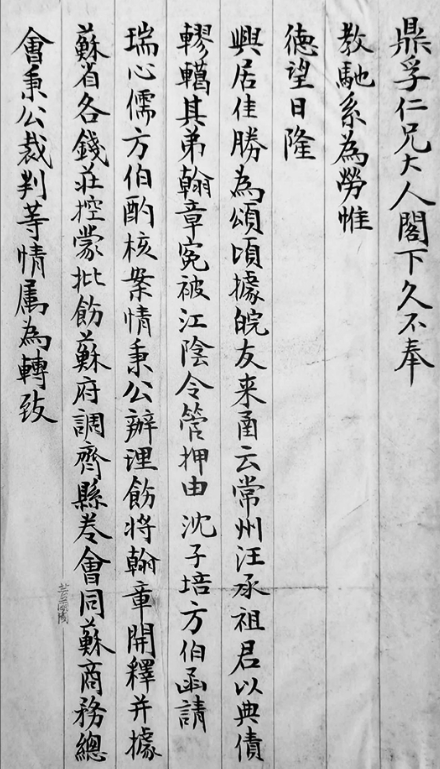 鼎孚仁兄大人閣下久不奉
教馳系為勞惟
德望日隆
興居佳勝為頌頃據皖友来函云常州汪承祖君以典債
轇轕其弟翰章寃被江陰令管押由沈子培方伯函請
瑞心儒方伯酌核案情秉公辦理飭將翰章開釋并據
蘇省各錢莊控蒙批飭蘇府調齊縣卷會同蘇商務總
會秉公裁判等情属為轉致